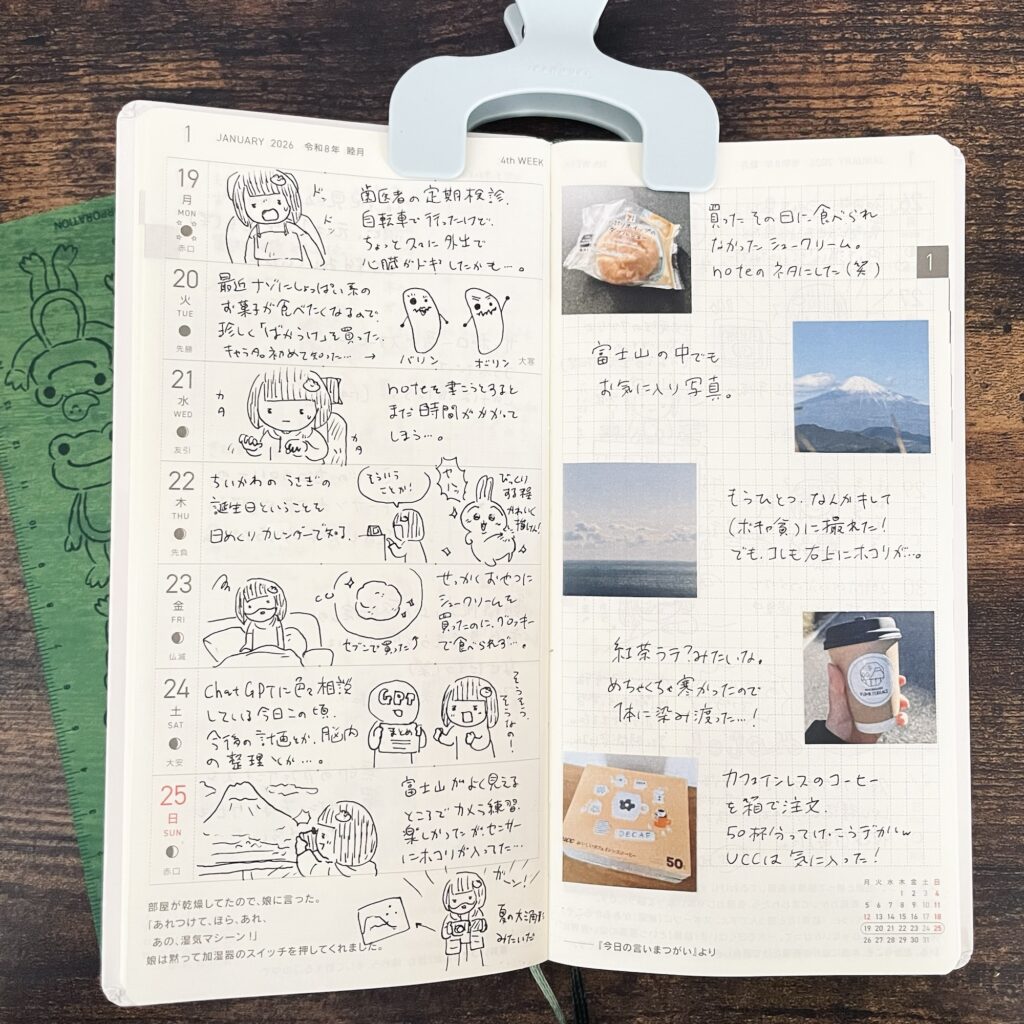 1 JANUARY 2026 令和8年 睦月
4th WEEK
19
月
MON
赤口
ドッ
ドン
歯医者の定期検診。
自転車で行ったけど、
ちょっと久々に外出で
心臓がドキドキしたかも…。
20
火
TUE
先勝
最近ナゾにしょっぱい系の
お菓子が食べたくなるので
珍しく「ばかうけ」を買った。
キャラの名。初めて知った… →
バリン
ボリン
大寒
21
水
WED
友引
カタ
カタ
noteを書こうとすると
まだ時間がかかって
しまう…。
22
木
THU
先負
ちいかわのうさぎの
誕生日ということを
日めくりカレンダーで知る。
そういう
ことか!
ヤハ
びっくり
する程
かわいく
描けん!
23
金
FRI
仏滅
セブンで買った
せっかくおせつに
シュークリームを
買ったのに、グロッキー
で食べられず…。
24
土
SAT
大安
ChatGPTに色々相談
している今日この頃。
今後の計画とか、脳内
の整理とか…。
GPT
まとめ
そうそう、
そうなの!
25
日
SUN
赤口
富士山がよく見える
ところでカメラ練習。
楽しかったがセンサー
にホコリが入ってた…
ガーン!
夏の大三角形
みたいだ
部屋が乾燥してたので、娘に言った。
「あれつけて、ほら、あれ、
あの、湿気マシーン!」
娘は黙って加湿器のスイッチを押してくれました。
買ったその日に食べられ
なかったシュークリーム。
noteのネタにした(笑)
1
富士山の中でも
お気に入り写真。
もうひとつ、なんかキレイ
に撮れた!
でも、コレも右上にホコリが…。
紅茶ラテ?みたいな。
めちゃくちゃ寒かったので
体に染み渡った…!
DECAF
50
カフェインレスのコーヒー
を箱で注文。
50杯分ってけっこうデカいw
UCCは気に入った!
月 火 水 木 金 土 日
1 2 3 4
5 6 7 8 9 10 11
12 13 14 15 16 17 18
19 20 21 22 23 24 25
26 27 28 29 30 31
『今日の言いまつがい』より